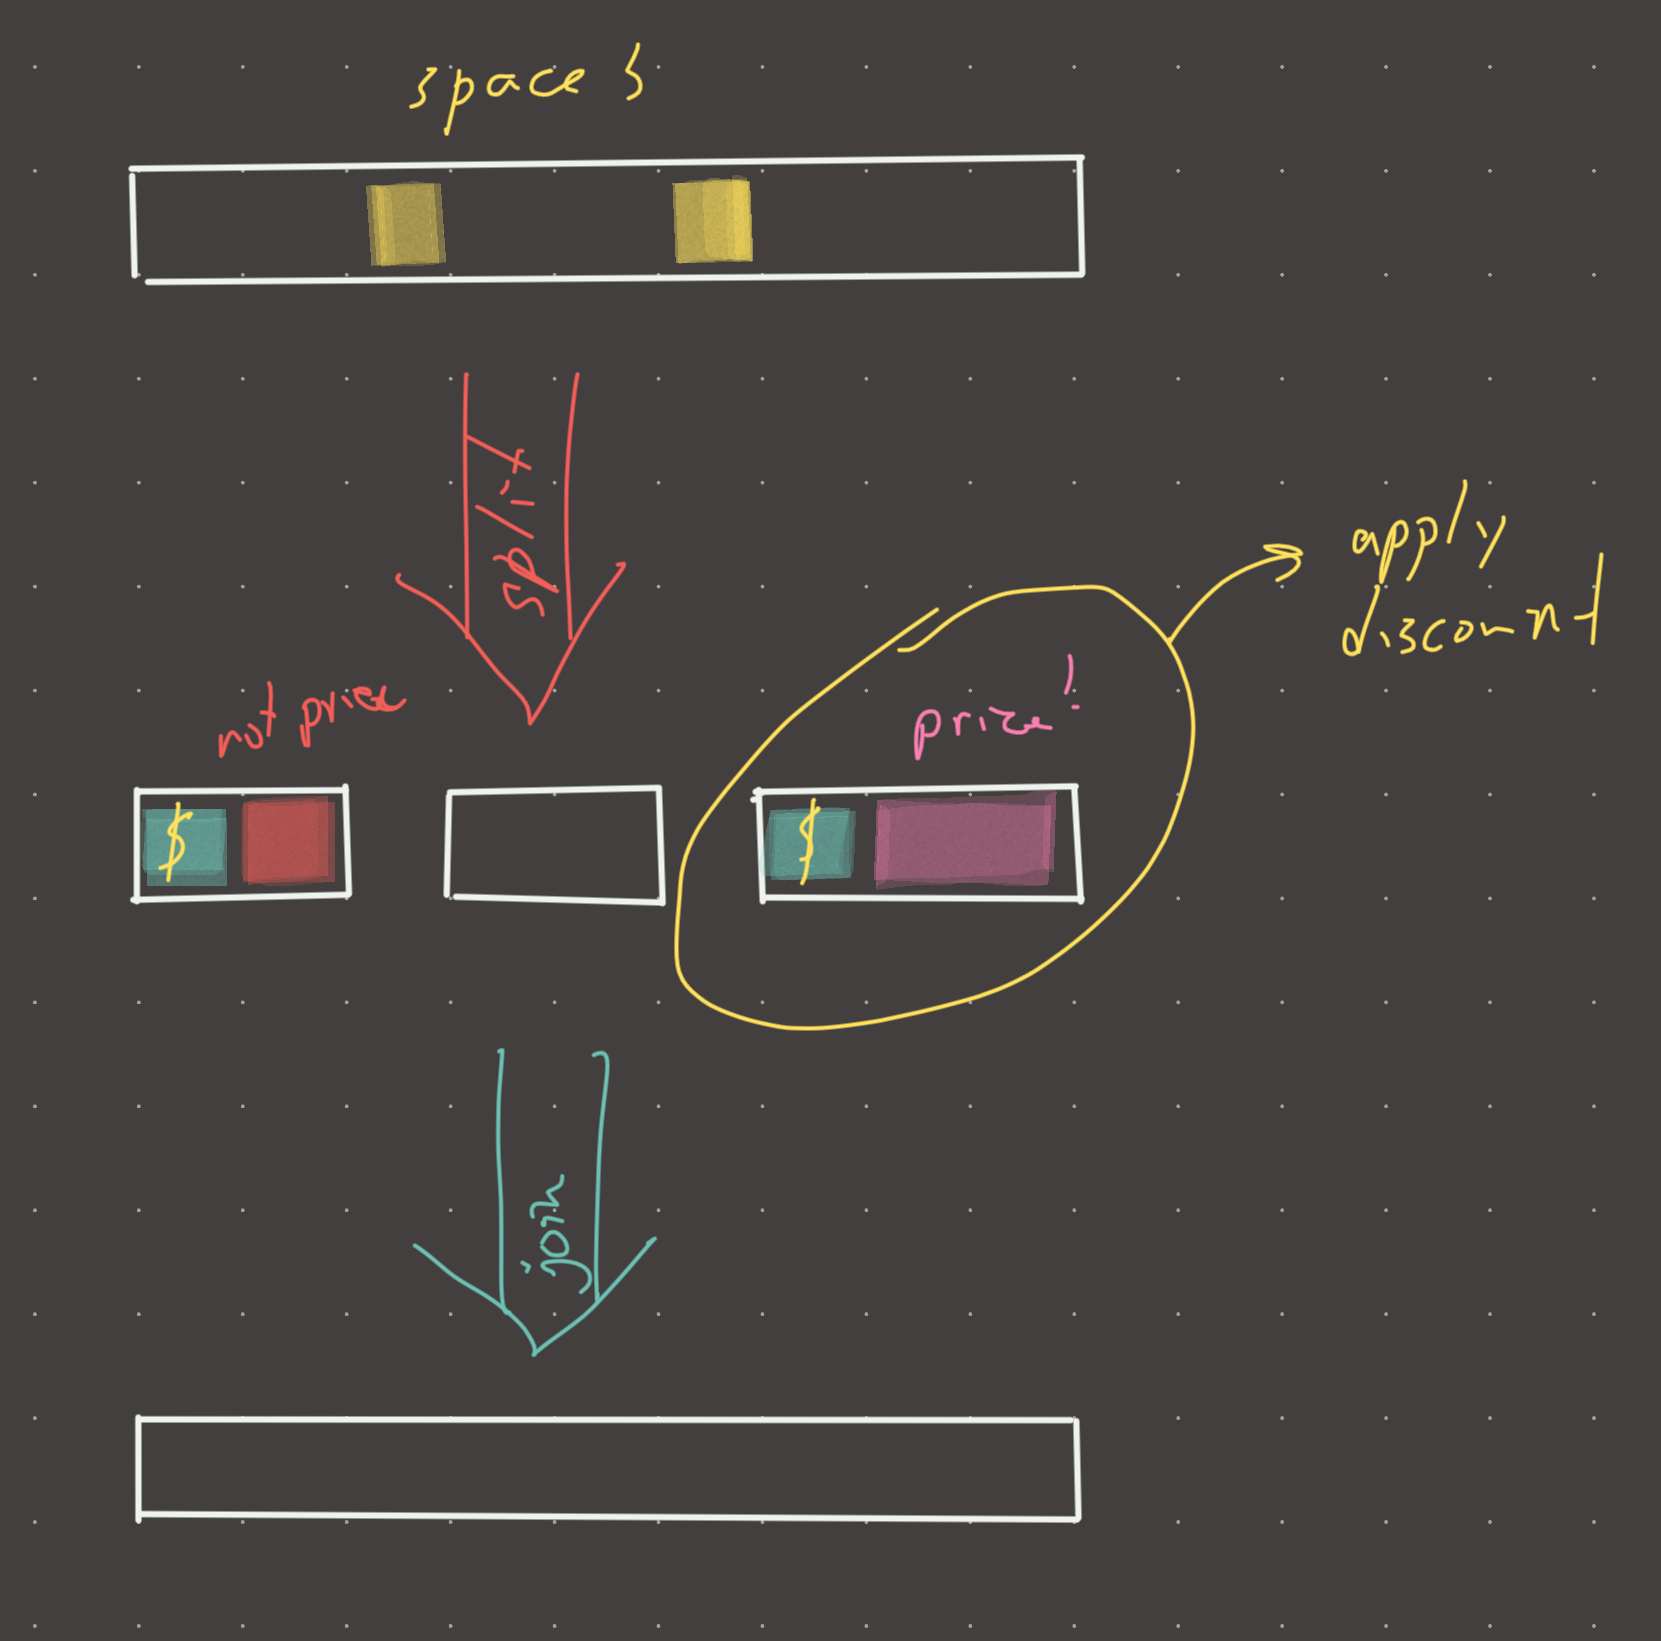 spaces
split
apply
discount
not price
price!
$
$
join